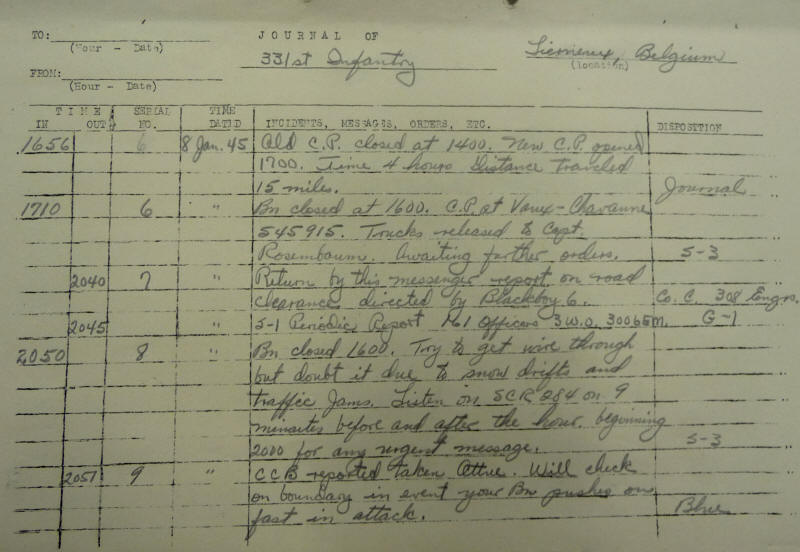 TO: JOURNAL OF
(Hour - Date) 331st Infantry Licneux, Belgium
(location)
FROM:
(Hour - Date)
TIME SERIAL TIME
IN OUT NO. DATED INCIDENTS, MESSAGES, ORDERS, ETC. DISPOSITION
1656 6 8 Jan. 45 Old C.P. closed at 1400. New C.P. opened
1700. Time 4 hours Distance traveled
15 miles. Journal
1710 6 " Bn closed at 1600. C.P. at Vaux-Chavanne
545915. Trucks released to Capt.
Rosembaum. Awaiting further orders. S-3
2040 7 " Return by this messenger report on road
clearance directed by Blackboy 6. Co. C. 308 Engrs.
2045 " S-1 Periodic Report 161 Officers 3 W.O. 3006 EM. G-1
2050 8 " Bn closed 1600. Try to get wire through
but doubt it due to snow drifts and
traffic Jams. Listen on SCR 284 on 9
minutes before and after the hour beginning
2000 for any urgent message. S-3
2051 9 " CCB reported taken Attue. Will check
on boundary in event your Bn pushes on
fast in attack. Blue